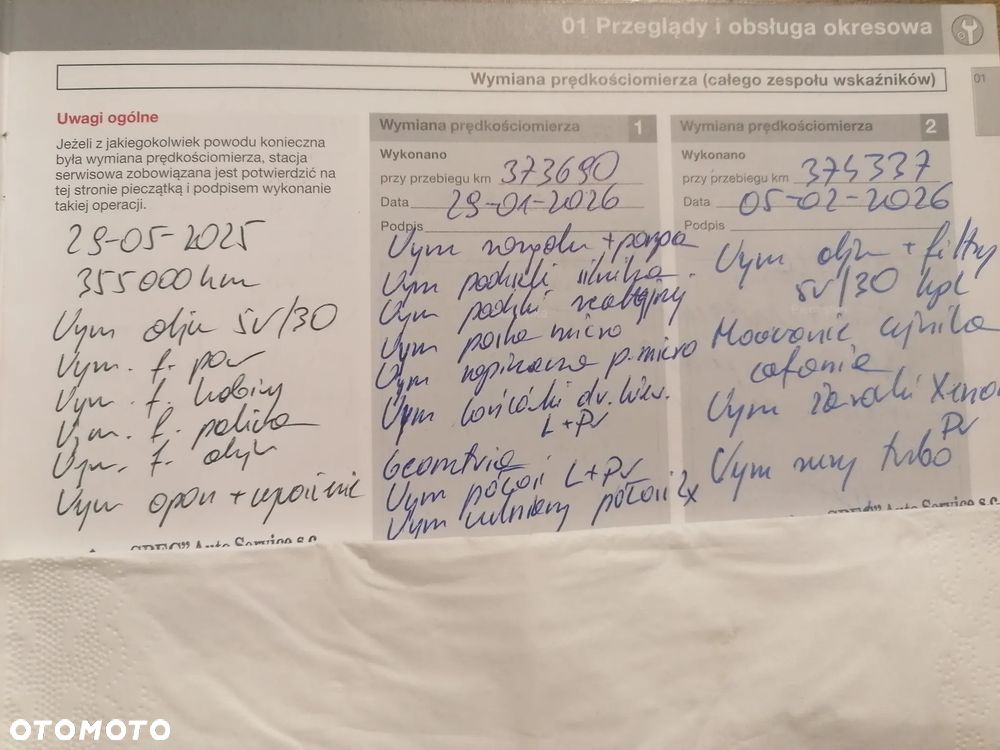 01 Przeglądy i obsługa okresowa
01
Wymiana prędkościomierza (całego zespołu wskaźników)
Uwagi ogólne
Jeżeli z jakiegokolwiek powodu konieczna
była wymiana prędkościomierza, stacja
serwisowa zobowiązana jest potwierdzić na
tej stronie pieczątką i podpisem wykonanie
takiej operacji.
29-05-2025
355000 km
Vym olju 5V/30
Vym. f. pow
Vym. f. kabiny
Vym. f. paliva
Vym. f. olju
Vym opon +
Auto Service s.c.
Wymiana prędkościomierza 1
Wykonano
przy przebiegu km 373690
Data 29-01-2026
Podpis
Vym rozrządu + pompa
Vym poduszki silnika
Vym poduszki
Vym paska micro
Vym napinacza p. micro
Vym końcówki dr. kier.
L+Pr
Geometria
Vym półosi L+Pr
Vym półosi 2x
Wymiana prędkościomierza 2
Wykonano
przy przebiegu km 374337
Data 05-02-2026
Podpis
Vym olju + filtry
5V/30 kpl
Mocovanie cujnika
cofania
Vym żarówki Xenon
Pr
Vym rury turbo
Auto Service s.c.
OTOMOTO